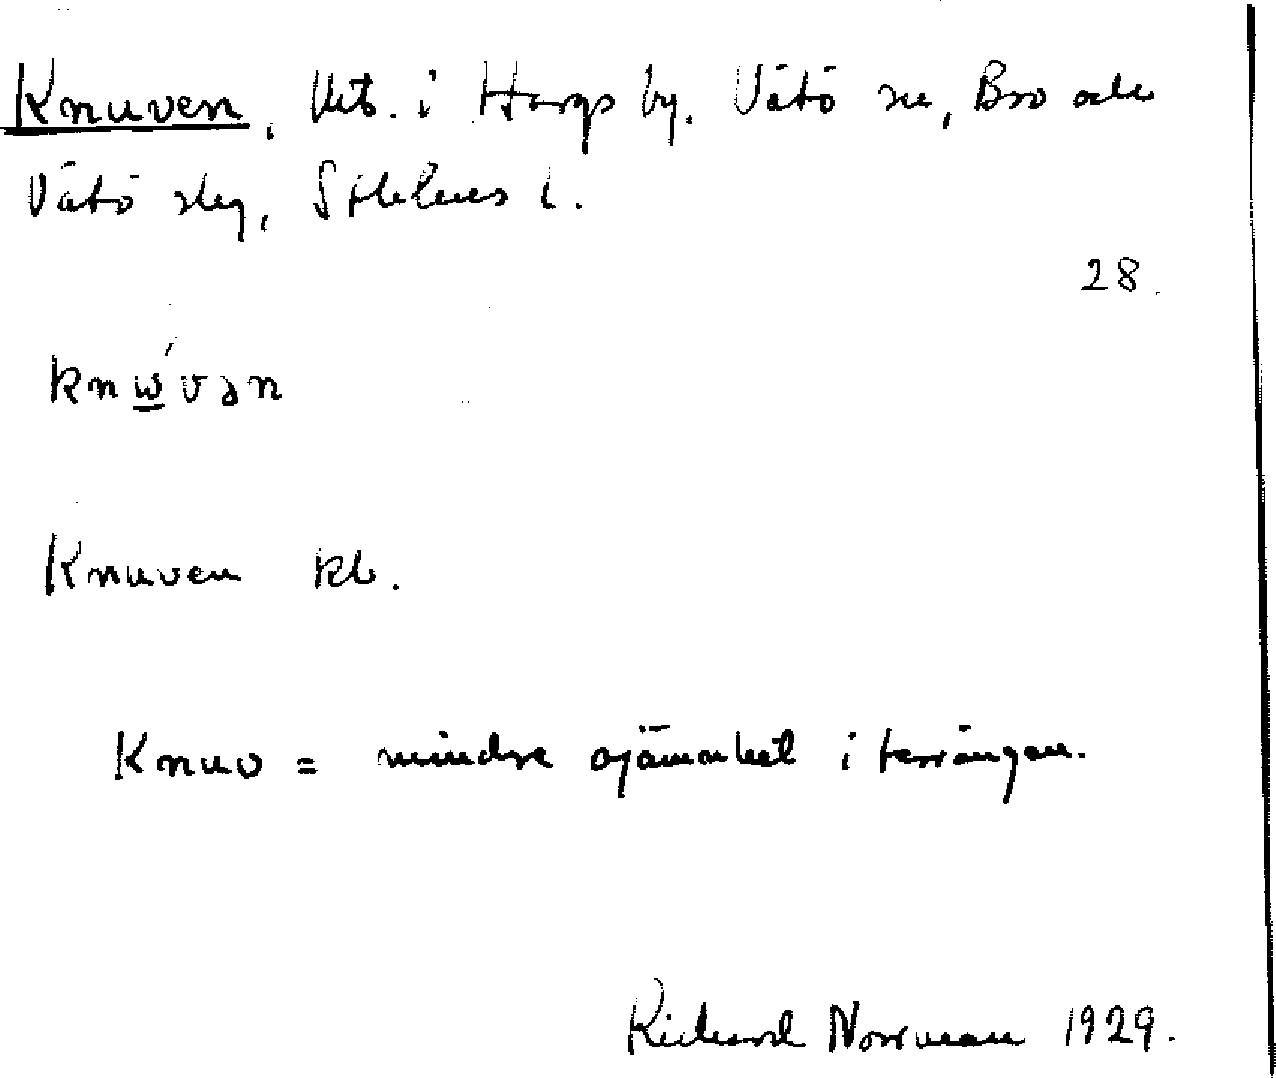 Knuven, Utb. i Hargs by. Vätö sn, Bro och
Vätö slg, Sthlms l.
28.
knẃvən
Knuven kb.
Knuv = mindre ojämnhet i terrängen.
Richard Norrman 1929.